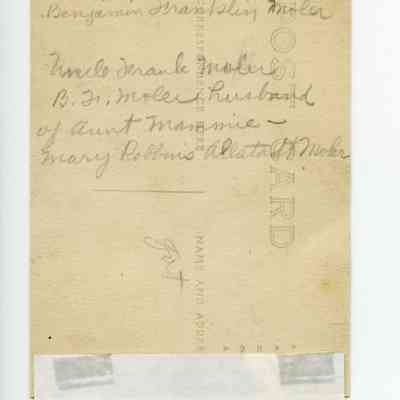 Benjamin Franklin Moler
Uncle Frank Moler
B. F. Moler husband
of Aunt Mammie -
Mary Robbins Moler
POST CARD
CORRESPONDENCE HERE
NAME AND ADDRE